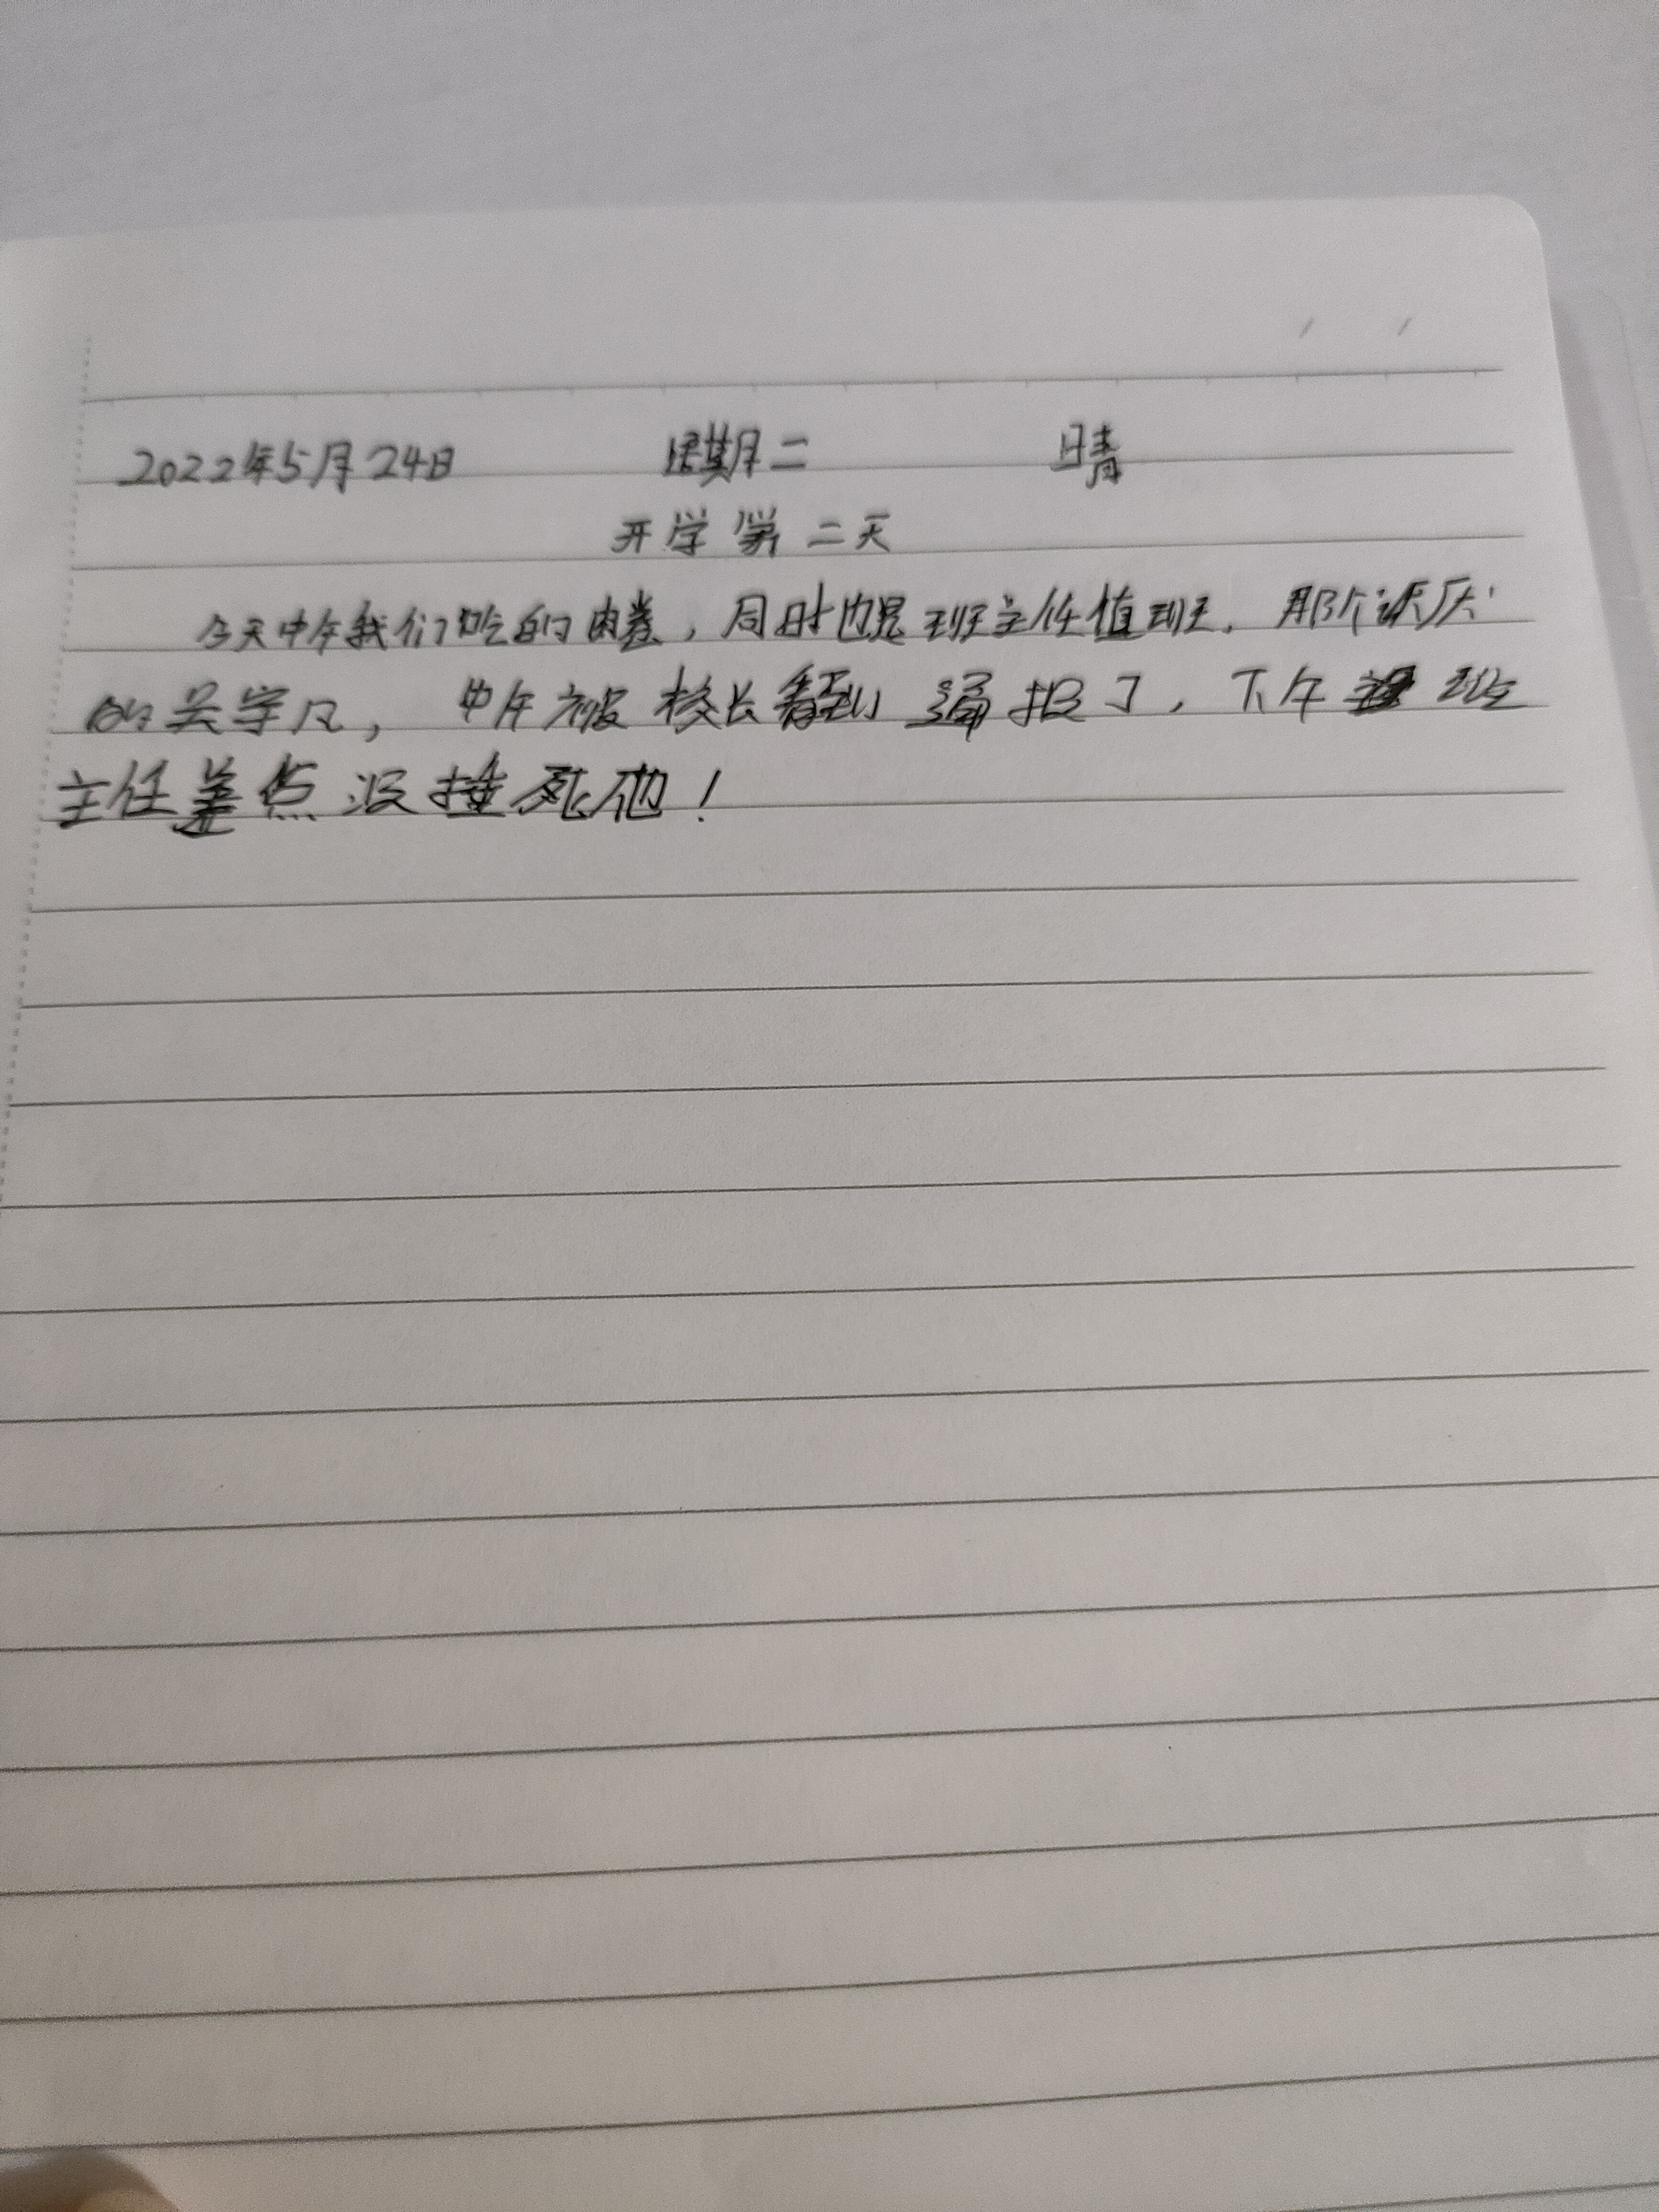 2022年5月24日 星期二 晴
开学第二天
今天中午我们吃的肉卷,同时也是班主任值班.那个讨厌
的吴宇凡,中午被校长看到通报了,下午班
主任差点没捶死他!